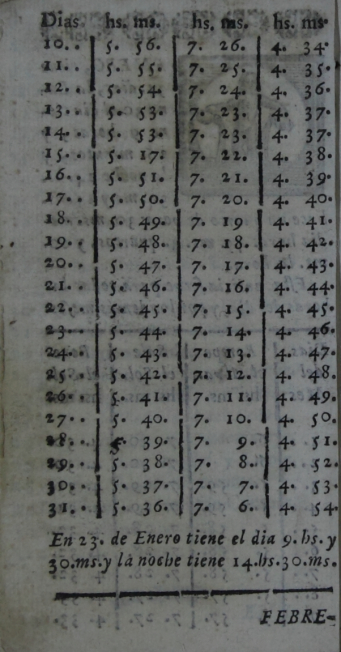 Dias. hs. ms. hs. ms. hs. ms.
10.. 5. 56. 7. 26. 4. 34.
11.. 5. 55. 7. 25. 4. 35.
12.. 5. 54. 7. 24. 4. 36.
13.. 5. 53. 7. 23. 4. 37.
14.. 5. 53. 7. 23. 4. 37.
15.. 5. 17. 7. 22. 4. 38.
16.. 5. 51. 7. 21. 4. 39.
17.. 5. 50. 7. 20. 4. 40.
18.. 5. 49. 7. 19 4. 41.
19.. 5. 48. 7. 18. 4. 42.
20.. 5. 47. 7. 17. 4. 43.
21.. 5. 46. 7. 16. 4. 44.
22.. 5. 45. 7. 15. 4. 45.
23.. 5. 44. 7. 14. 4. 46.
24.. 5. 43. 7. 13. 4. 47.
25.. 5. 42. 7. 12. 4. 48.
26.. 5. 41. 7. 11. 4. 49.
27.. 5. 40. 7. 10. 4. 50.
28.. 5. 39. 7. 9. 4. 51.
29.. 5. 38. 7. 8. 4. 52.
30.. 5. 37. 7. 7. 4. 53.
31.. 5. 36. 7. 6. 4. 54.
En 23. de Enero tiene el dia 9. hs. y
30.ms.y la noche tiene 14.hs.30.ms.
FEBRE-